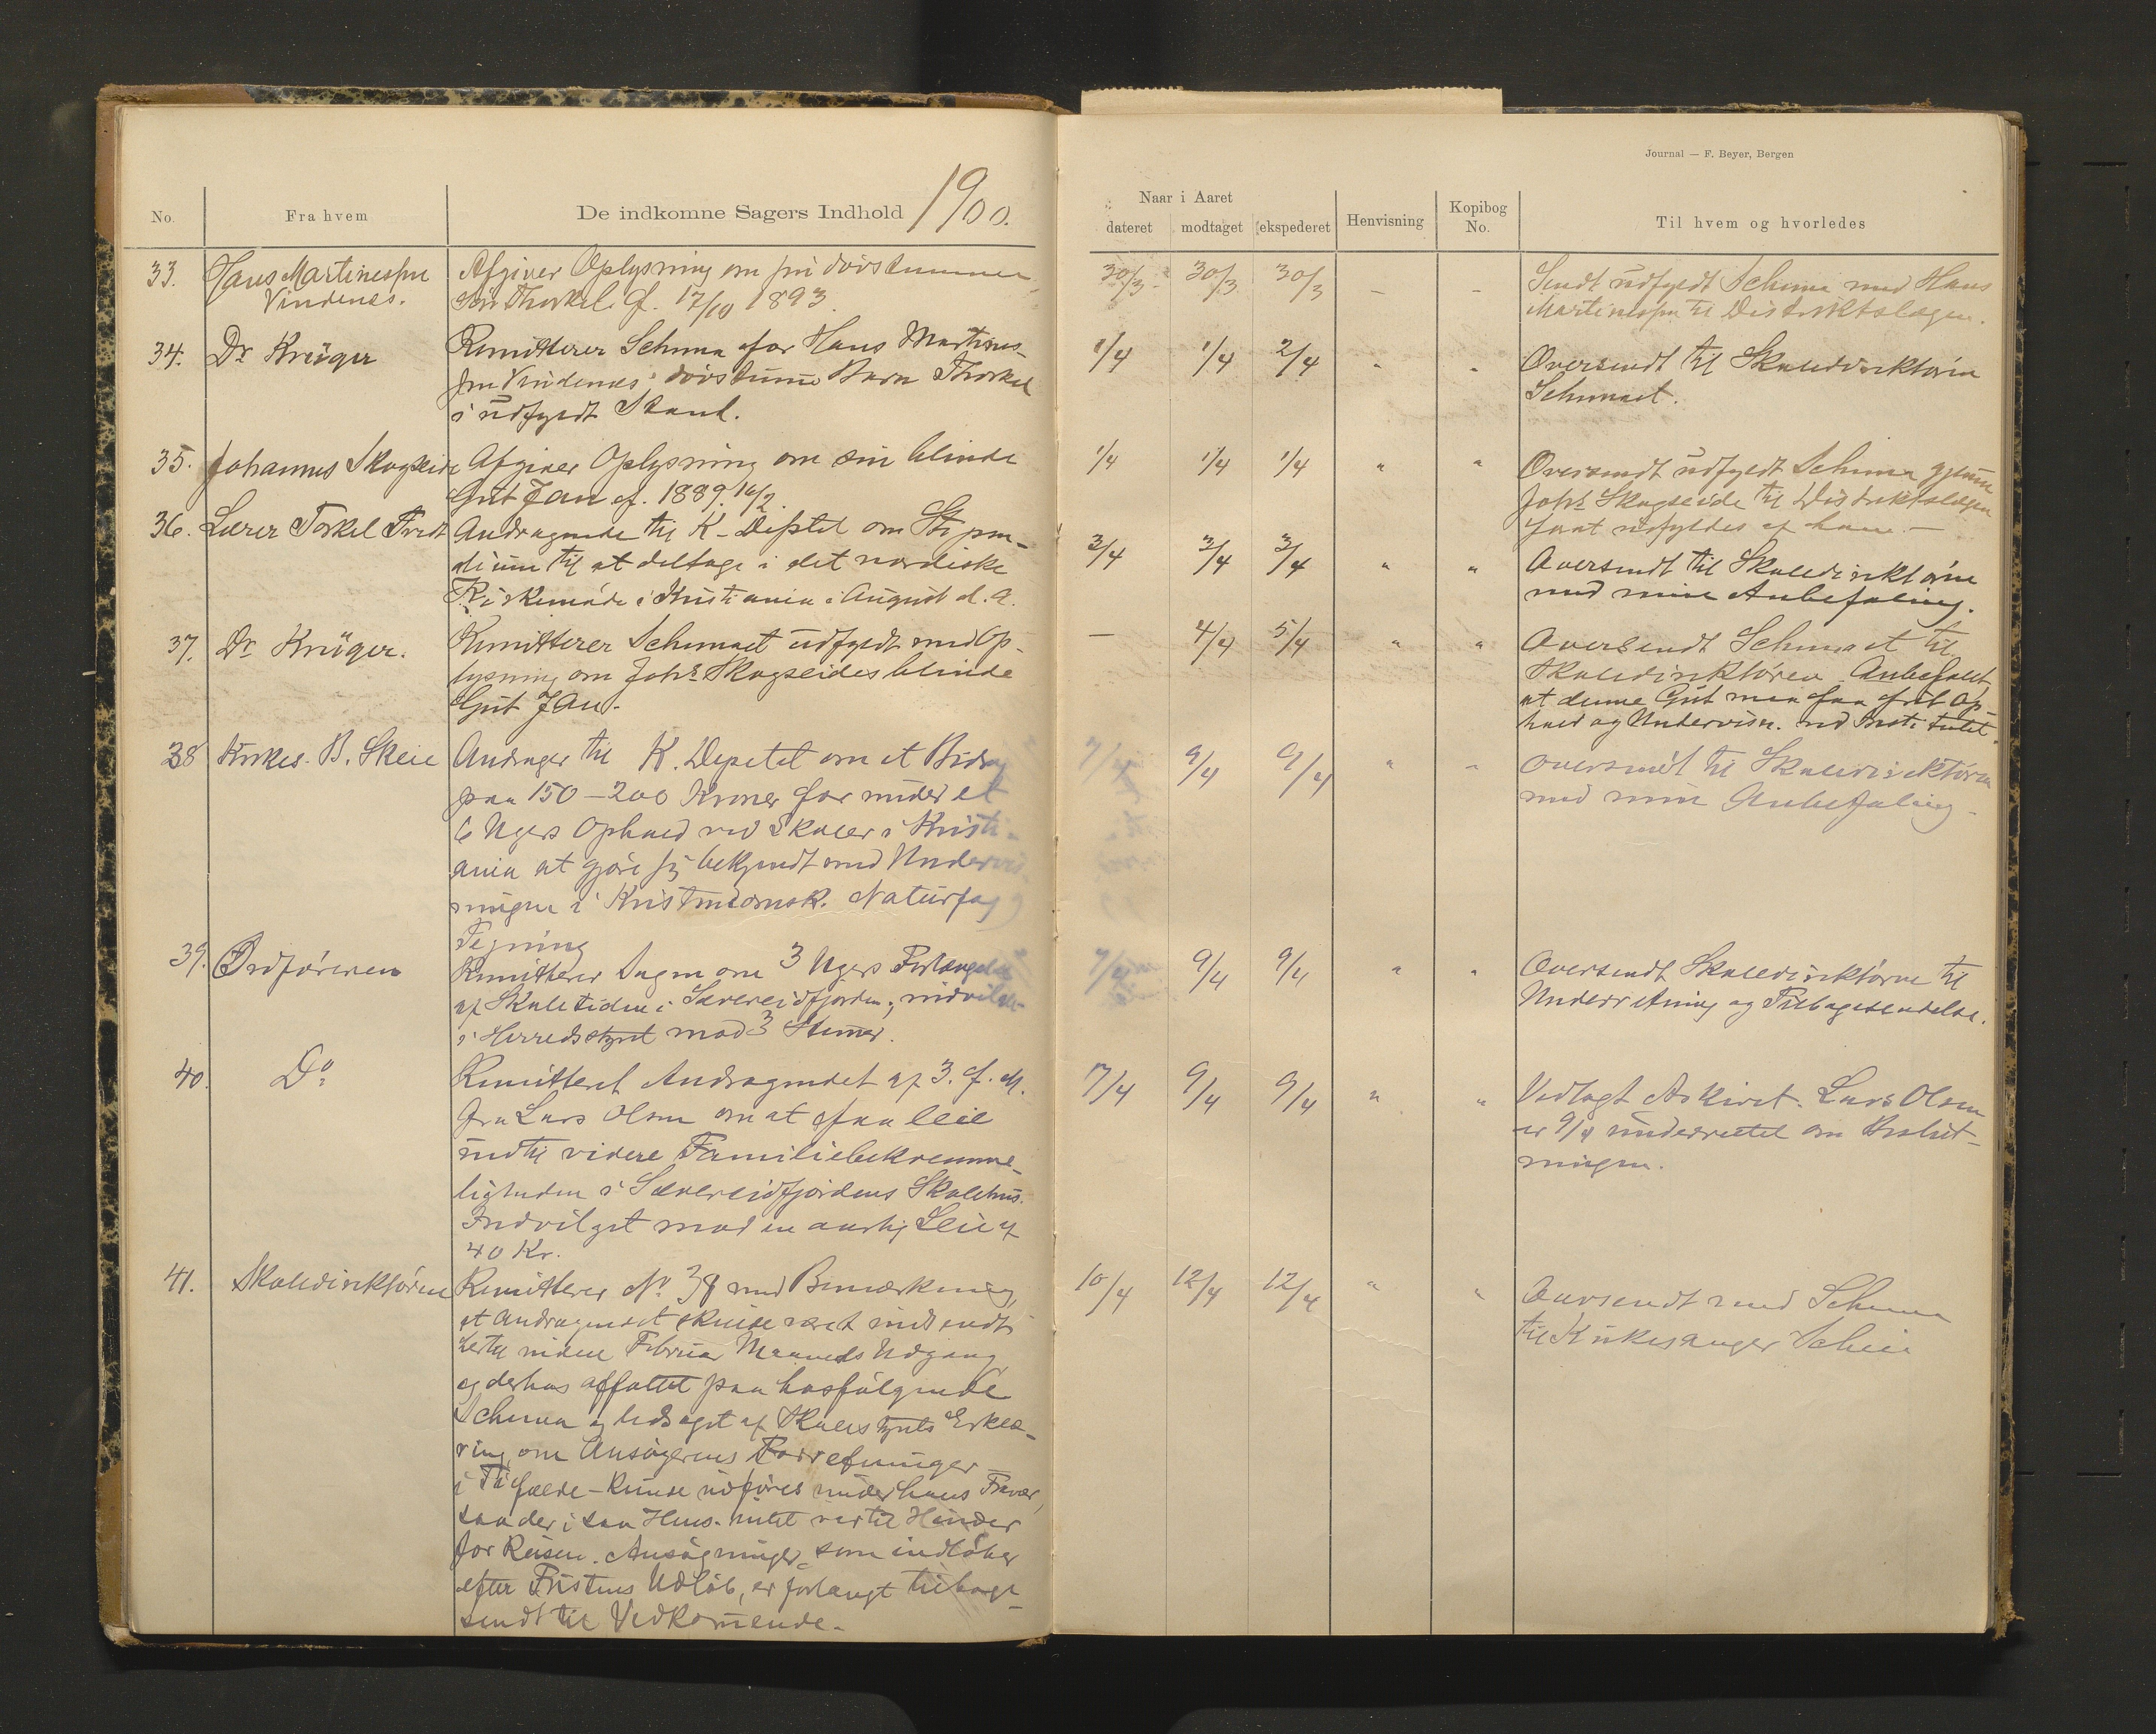 1900.
Journal — F. Beyer, Bergen
No.
Fra hvem
De indkomne Sagers Indhold
Naar i Aaret
dateret
modtaget
ekspederet
Henvisning
Kopibog
No.
Til hvem og hvorledes
33. Hans Martinessen
Vindenes.
Afgiver Oplysning om sin døvstumme
Søn Thorkel f. 17/10 1893
30/3 30/3 30/3 – –
Sendt udfyldt Schema med Hans
Martinessen til Distriktslægen.
34. Dr Krüger
Remitterer Schema for Hans Martines-
sen Vindenes' døvstumme Barn Thorkel
i udfyldt Stand.
1/4 1/4 2/4 " "
Oversendt til Skoledirektøren
Schemaet.
35. Johannes Skogseide
Afgiver Oplysning om sin blinde
Gut Jan f. 1889. 16/2.
1/4 1/4 1/4 " "
Oversendt udfyldt Schema gjennem
Johs Skogseide til Distriktslægen
for at udfyldes af ham. –
36. Lærer Torkel Tvedt
Andragende til K-Deptet om Stipen-
dium til at deltage i det nordiske
Kirkemøde i Kristiania i August d. A.
3/4 3/4 3/4 " "
Oversendt til Skoledirektøren
med min Anbefaling.
37. Dr Krüger.
Remitterer Schemaet udfyldt med Op-
lysning om Johs Skogseides blinde
Gut Jan.
– 4/4 5/4 " "
Oversendt Schemaet til
Skoledirektøren. Anbefalet
at denne Gut maa faa frit Op-
hold og Undervisn. ved Institutet.
38 Kirkes. B. Skeie
Andrager til K. Depetet om et Bidrag
paa 150 – 200 Kroner for under et
6 Ugers Ophold ved Skoler i Kristi-
ania at gjøre sig bekjendt med Undervis-
ningen i Kristendomsk. Naturfag og
Tegning
7/4 9/4 9/4 " –
Oversendt til Skoledirektøren
med min Anbefaling –
39. Ordføreren
Remitterer Sagen om 3 Ugers Forlængelse
af Skoletiden i Sævereidfjorden; indvilget
i Herredsstyret mod 3 Stemmer.
7/4 9/4 9/4 " "
Oversendt Skoledirektøren til
Underretning og Tilbagesendelse.
40. Do
Remitteret Andragendet af 3. f. M.
fra Lars Olsen om at faa leie
indtil videre Familiebekvemme-
ligheden i Sævereidfjordens Skolehus.
Indvilget mod en aarlig Leie af
40 Kr.
7/4 9/4 9/4 " "
Vedlagt Arkivet. Lars Olsen
er 9/4 underrettet om Beslut-
ningen.
41. Skoledirektøren
Remitterer No 38 med Bemærkning,
at Andragendet skulde været indsendt
hertil inden Februar Maaneds Udgang
og derhos affattet paa hosfølgende
Schema og ledsaget af Skolestyrets Erklæ-
ring om Ansøgerens Forretninger
i Tilfælde – kunde udføres under hans Fravær,
saa der i saa Hens. intet var til Hinder
for Reisen. Ansøgninger, som indløber
efter Fristens Udløb, er forlangt tilbage-
sendt til Vedkommende. –
10/4 12/4 12/4 " "
Oversendt med Schema
til Kirkesanger Scheie